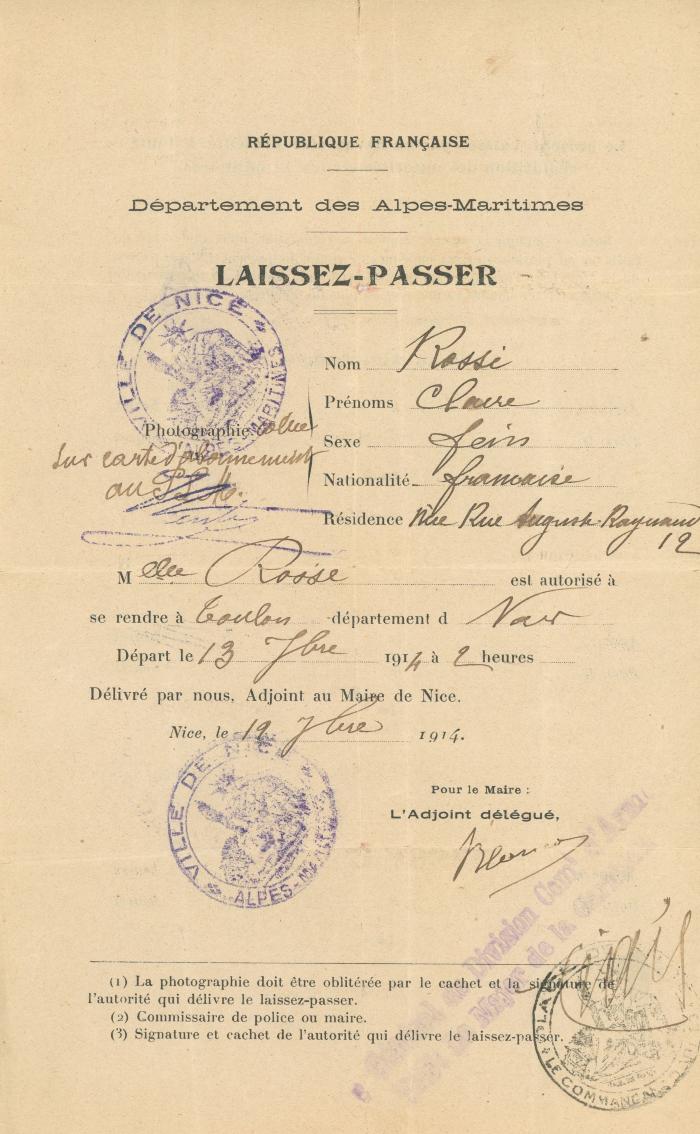 RÉPUBLIQUE FRANÇAISE
Département des Alpes-Maritimes
LAISSEZ-PASSER
VILLE DE NICE
ALPES-MARITIMES
Photographie collée
sur carte d'abonnement
au
Nom Rossi
Prénoms Claire
Sexe fém
Nationalité française
Résidence Nice Rue Auguste Raynaud
12
M elle Rossi est autorisé à
se rendre à Toulon département d Var
Départ le 13 7bre 1914 à 2 heures
Délivré par nous, Adjoint au Maire de Nice.
Nice, le 12 7bre 1914.
VILLE DE NICE
ALPES-MARITIMES
Pour le Maire :
L'Adjoint délégué,
Division
Major de la
(1) La photographie doit être oblitérée par le cachet et la signature de
l'autorité qui délivre le laissez-passer.
(2) Commissaire de police ou maire.
(3) Signature et cachet de l'autorité qui délivre le laissez-passer.
LE COMMANDANT